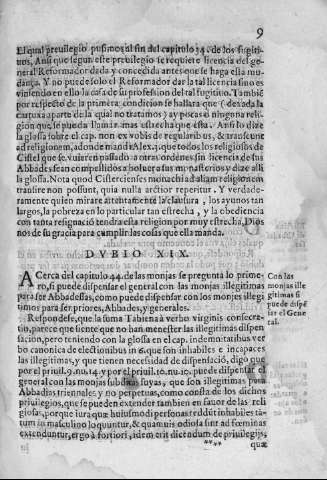 9
El qual preuilegio pusimos al fin del capitulo 74. de los fugiti-
uos, Ansi que segun este preuilegio se requiere licencia del ge-
neral Reformador dada y concedida antes que se haga esta mu-
dança. Y no puede solo el Reformador dar la tal licencia sino es
viniendo en ello la casa de su profession del tal fugitiuo. Tambiē
por respecto de la primera condicion se hallara que (dexada la
cartuxa aparte de la qual no tratamos) ay pocas o ninguna reli-
gion que se pueda llamar mas estrecha que esta. Ansi lo dize
la glossa sobre el cap. non ex vobis de regularibus, & transeunt
ad religionem, adonde manda Alex. 3. que todos los religiosos de
Cistel que se vuieren passado a otras ordenes sin licencia de sus
Abbades sean compulsidos a boluer a sus monasterios y dize alli
la glossa. Nota quod Cistercienses monachi ad aliam religionem
transire non possunt, quia nulla arctior reperitur. Y verdade-
ramente quien mirare attentamente la clausura, los ayunos tan
largos, la pobreza en lo particular tan estrecha, y la obediencia
con tanta resignacion tendra esta religion por muy estrecha, Dios
nos de su gracia para cumplir las cosas que ella manda.
DVBIO XIX.
ACerca del capitulo 44. de las monjas se pregunta lo prime-
ro, si puede dispensar el general con las monjas illegitimas
para ser Abbadessas, como puede dispensar con los monjes illegi
timos para ser priores, Abbades, y generales.
Con las
monjas ille
gitimas si
puede dispē
sar el Gene
ral.
Respondese, que la suma Tabiena à verbo virginis consecra-
tio, parece que siente que no han menester las illegitimas dispen
sacion, pero teniendo con la glossa en el cap. indemnitatibus ver
bo canonica de electionibus in 6. que son inhabiles e incapaces
las illegitimas, y que tienen necesidad de dispensaciō, digo que
por el priuil. 9. nu. 14. y por el priuil. 10. nu. 10. puede dispensar el
general con las monjas subditas suyas, que son illegitimas para
Abbadias triennales y no perpetuas, como consta de los dichos
priuilegios, que se pueden extender tambien en fauor de las reli
giosas, porque iura quæ huiusmodi personas reddūt inhabiles tā-
tum in masculino loquuntur, & quamuis odiosa sint ad fæminas
extenduntur, ergo à fortiori, idem erit dicendum de priuilegijs,
**** quæ